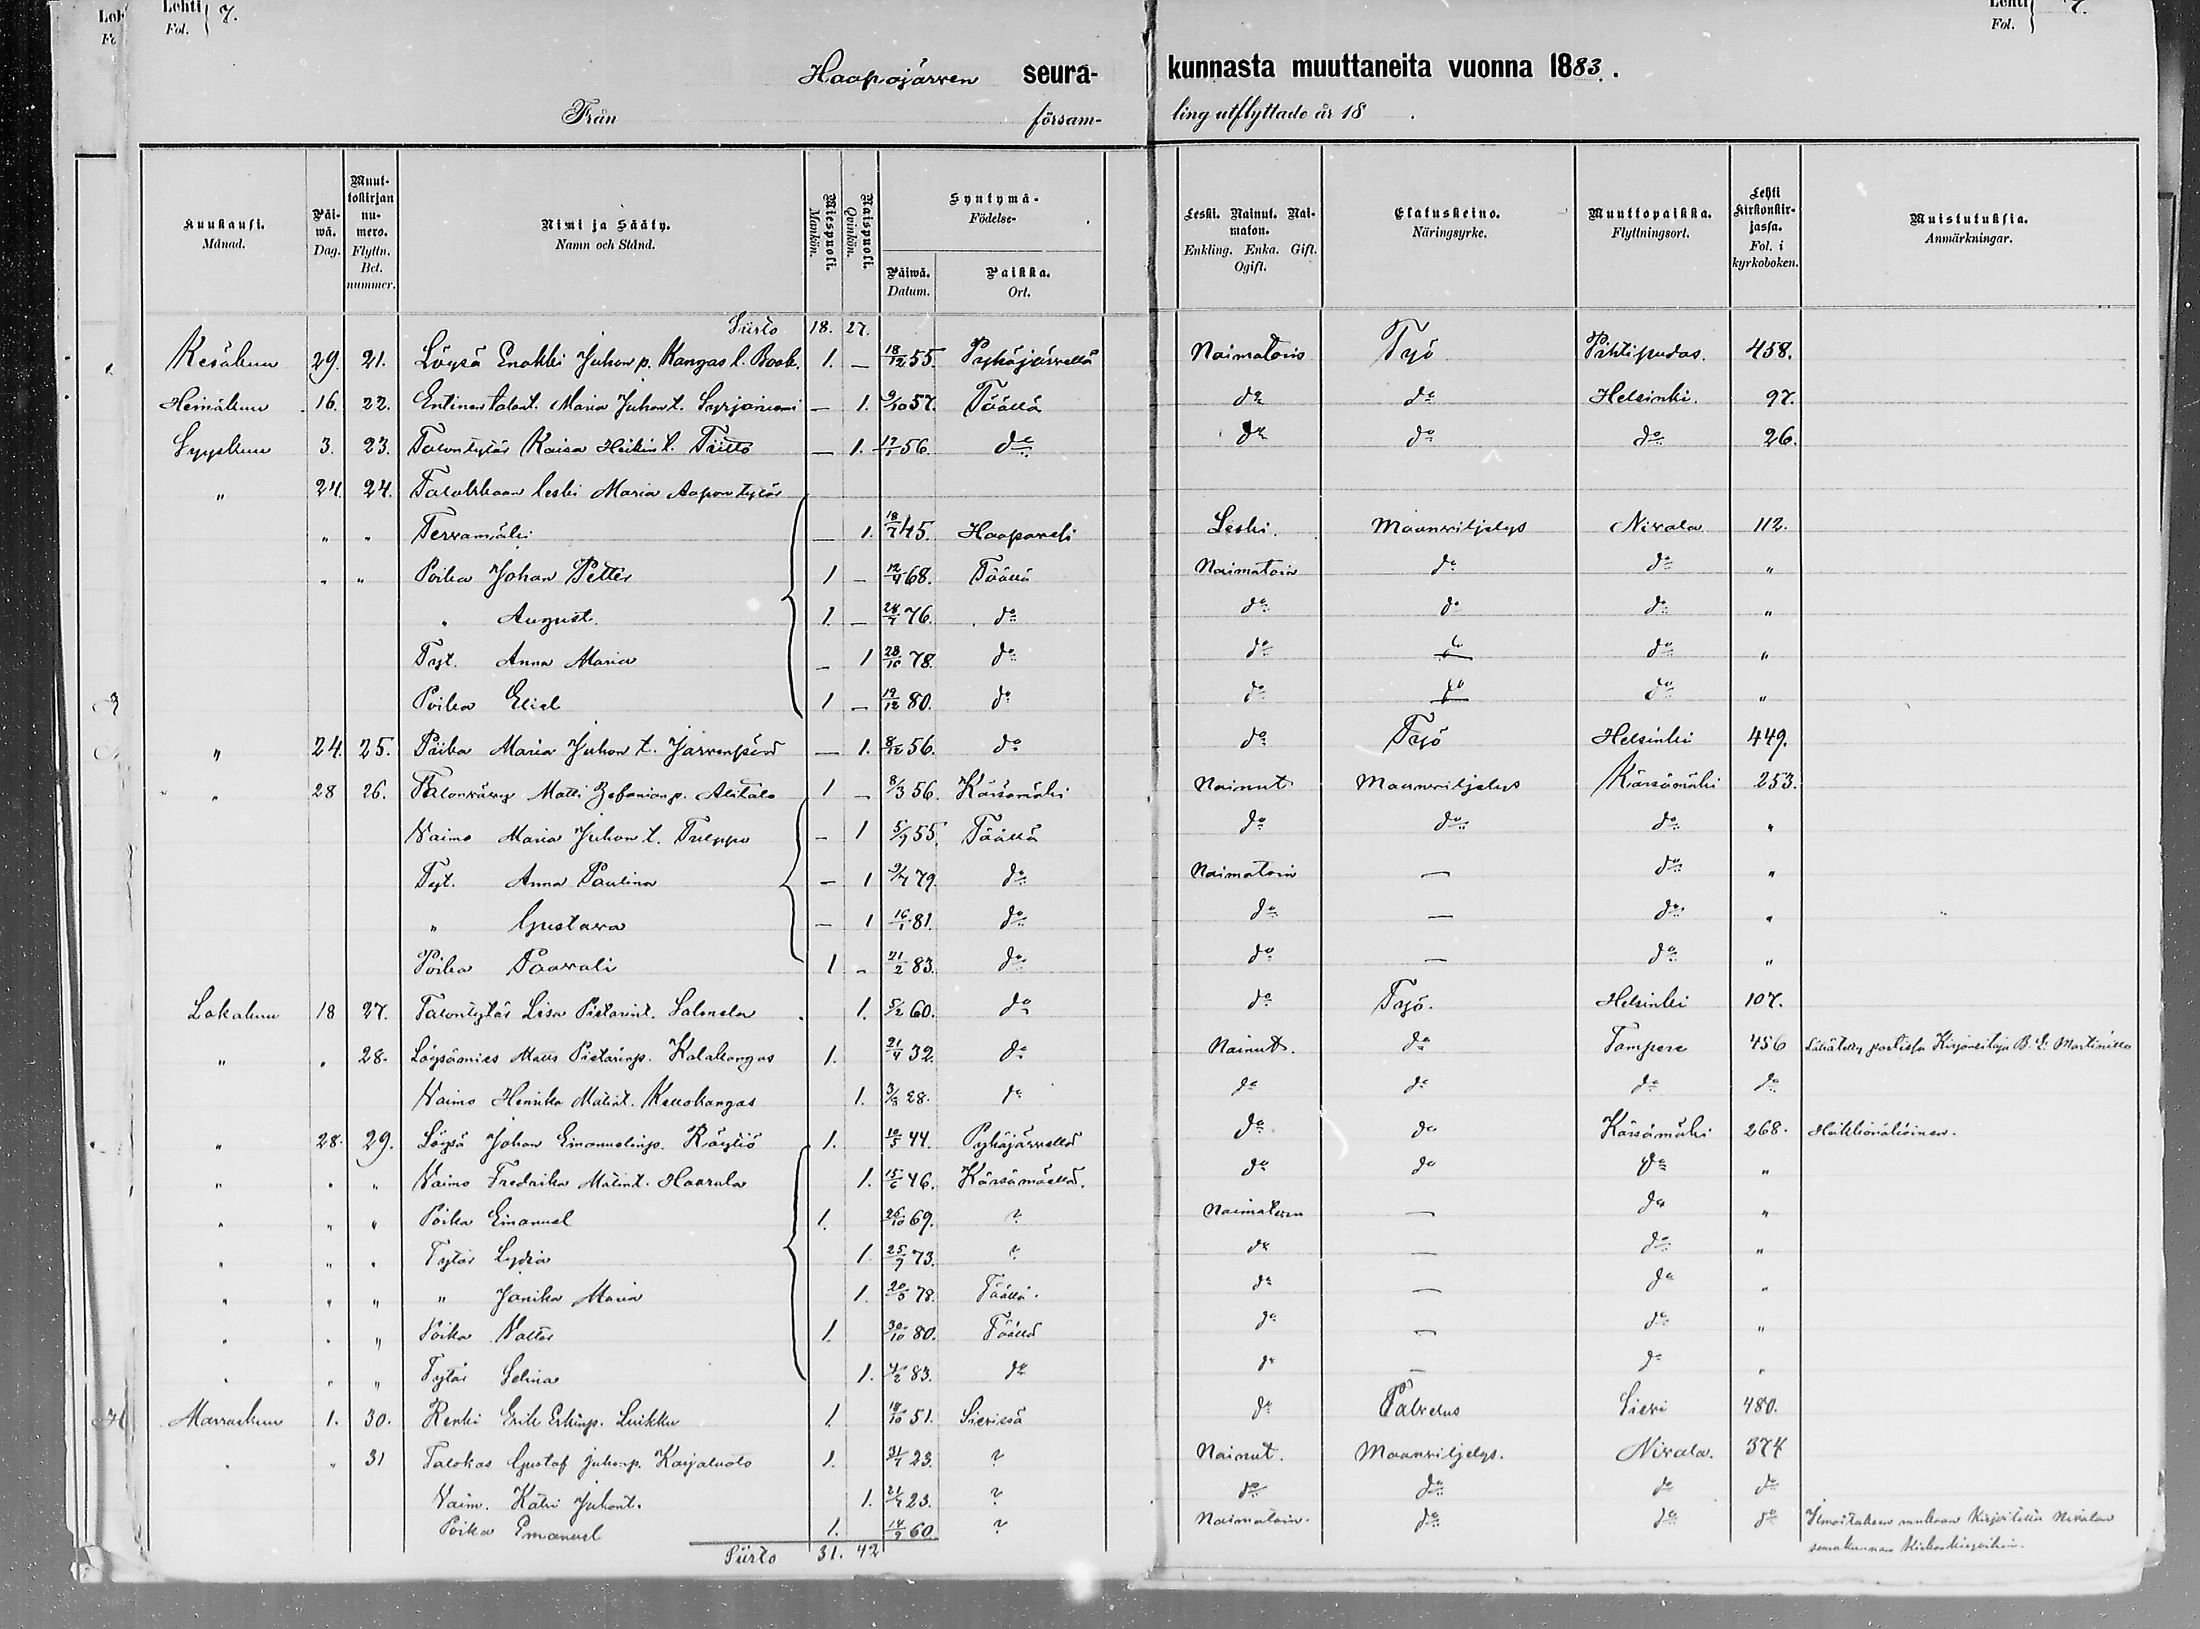 Lehti 7.
Fol.
Lehti 7.
Fol.
Haapajärven seura- kunnasta muuttaneita vuonna 1883.
Från församling utflyttade år 18 .
Kuukausi. Månad. Päiwä. Dag. Muuttokirjan numero. Flyttn. Bet. nummer. Nimi ja Sääty. Namn och Stånd. Miespuoli. Mankön. Naispuoli. Qvinkön. Syntymä- Födelse- Päiwä. Datum. Paikka. Ort. Leski. Nainut. Naimaton. Enkling. Enka. Gift. Ogift. Elatuskeino. Näringsyrke. Muuttopaikka. Flyttningsort. Lehti kirkonkirjassa. Fol. i kyrkoboken. Muistutuksia. Anmärkningar.
Siirto 18. 27.
Kesäkuu 29. 21. Löysä Enokki Juhon p. Kangas l. Book. 1. — 18/12 55. Pyhäjärvellä Naimatoin Työ Pihtipudas. 458.
Heinäkuu 16. 22. Entinen talont. Maria Juhon t. Syrjäniemi — 1. 9/10 57. Täällä do do Helsinki. 97.
Syyskuu 3. 23. Talontytär Kaisa Heikin t. Tiitto — 1. 17/1 56. do do do do 26.
" 24. 24. Talokkaan leski Maria Aapon tytär
" " Tervamäki — 1. 18/7 45. Haapavesi Leski. Maanviljelys Nivala 112.
" " Poika Johan Petter 1 — 12/4 68. Täällä Naimatoin do do "
" August. 1. — 24/7 76. do do do do "
Tyt. Anna Maria — 1 28/10 78. do do do do "
Poika Eliel 1 — 19/12 80. do do do do "
" 24. 25. Piika Maria Juhon t. Järvenpää — 1. 8/12 56. do do Työ Helsinki 449.
" 28 26. Talonvävy Matti Zefanian p. Alitalo 1 — 8/3 56. Kärsämäki Nainut Maanviljelys Kärsämäki 253.
Vaimo Maria Juhon t. Tulppo — 1 5/9 55. Täällä do do do "
Tyt. Anna Paulina — 1 9/7 79. do Naimatoin — do "
" Gustava — 1 16/1 81. do do — do "
Poika Paavali 1 — 21/2 83. do do — do "
Lokakuu 18 27. Talontytär Lisa Pietarint. Salmela 1. 5/2 60. do do Työ. Helsinki 107.
" " 28. Löysämies Matts Pietarinp. Kalakangas 1. 21/4 32. do Nainut. do Tampere 456
Vaimo Henrika Matint. Kellokangas 1. 3/8 28. do do do do do
" 28. 29. Löysä Johan Emanuelinp. Räytiö 1. 10/5 44. Pyhäjärvellä do do Kärsämäki 268.
" " " Vaimo Fredrika Matint. Haarala 1. 15/6 46. Kärsämäellä. do do do "
" " " Poika Emanuel 1. 26/10 69. ? Naimatoin — do "
" " " Tytär Lydia 1. 25/9 73. ? do — do "
" " " " Janika Maria 1. 20/5 78. Täällä. do — do "
" " " Poika Valter 1. 30/10 80. Täällä do — do "
" " " Tytär Selina 1. 4/2 83. do do — do "
Marraskuu 1. 30. Renki Erik Erkinp. Luikku 1. 18/10 51. Sievissä do Palvelus Sievi 480.
" " 31 Talokas Gustaf Juhonp. Karjaluoto 1. 31/7 23. ? Nainut. Maanviljelys. Nivala. 374
Vaim. Kaisa Juhont. 1. 21/4 23. ? do do do do
Poika Emanuel 1. 14/9 60. ? Naimatoin. do do do Ilmoituksen mukaan Nivalan
seurakunnan
Siirto 31. 42